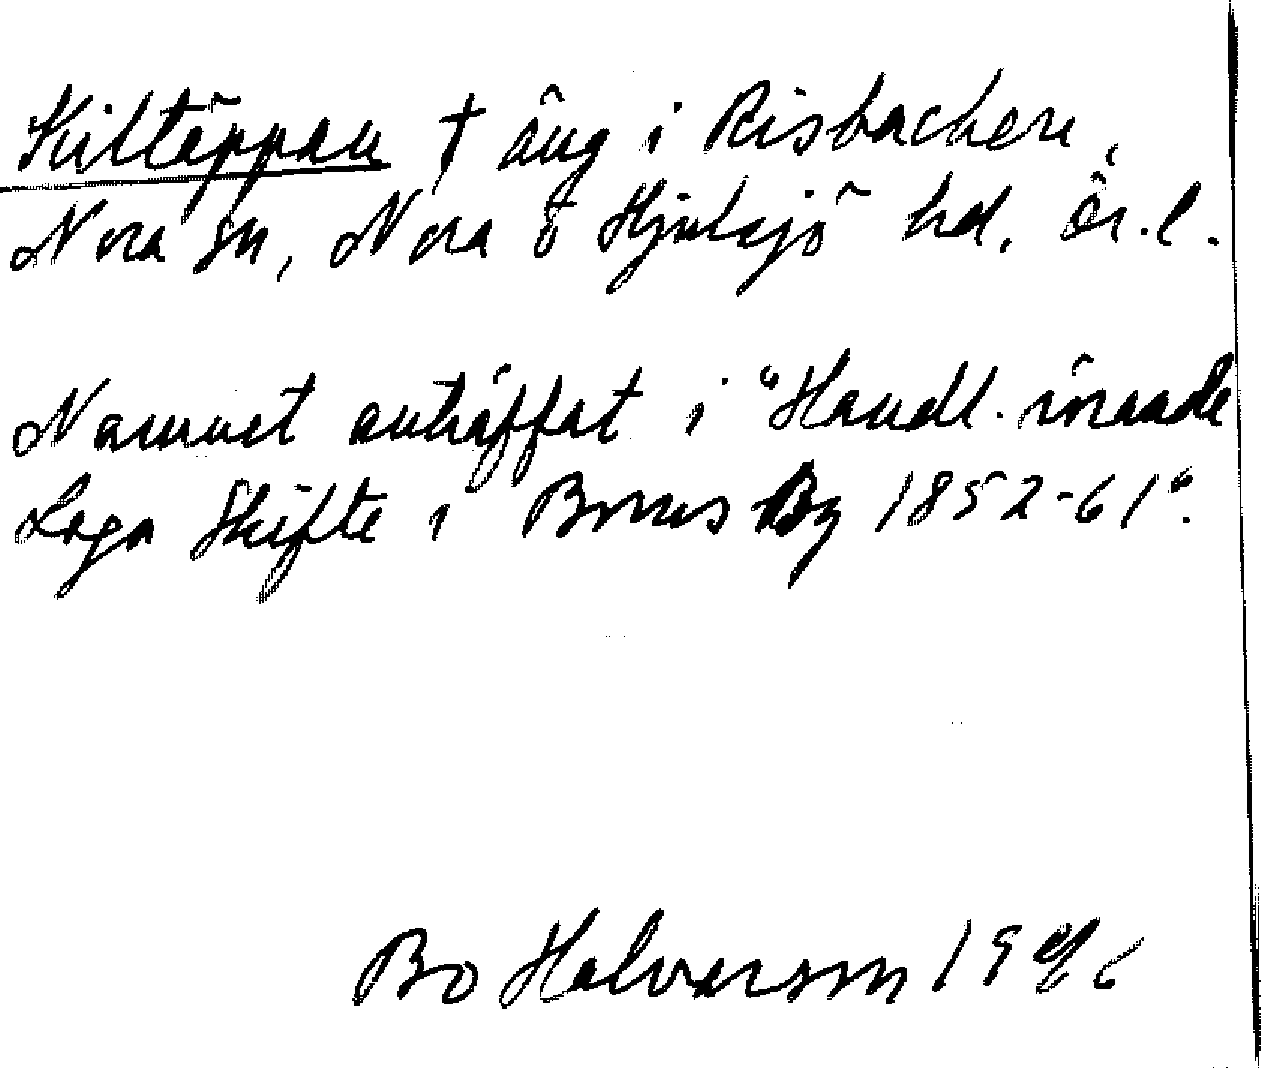 Kiltäppan † äng i Risbacken,
Nora sn, Nora o Hjulsjö hd. Ör. l.
Namnet anträffat i "Handl. rörande
Laga Skifte i Borns By 1852-61".
Bo Halvarson 19